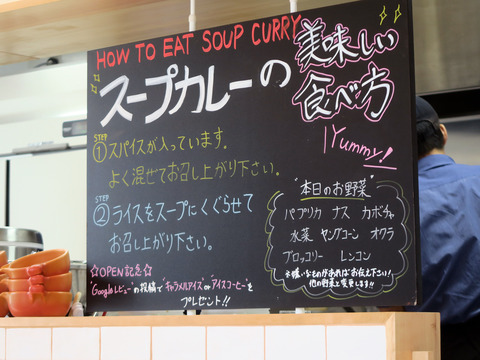 HOW TO EAT SOUP CURRY
スープカレーの
美味しい
食べ方
Yummy!
STEP
①スパイスが入っています。
よく混ぜてお召し上がり下さい。
STEP
②ライスをスープにくぐらせて
お召し上がり下さい。
"本日のお野菜"
パプリカ ナス カボチャ
水菜 ヤングコーン オクラ
ブロッコリー レンコン
※嫌いなものがあればお伝え下さい!
他の野菜と変更します!!
☆OPEN記念☆
"Googleレビュー"の投稿で"キャラメルアイス"or"アイスコーヒー"を
プレゼント!!